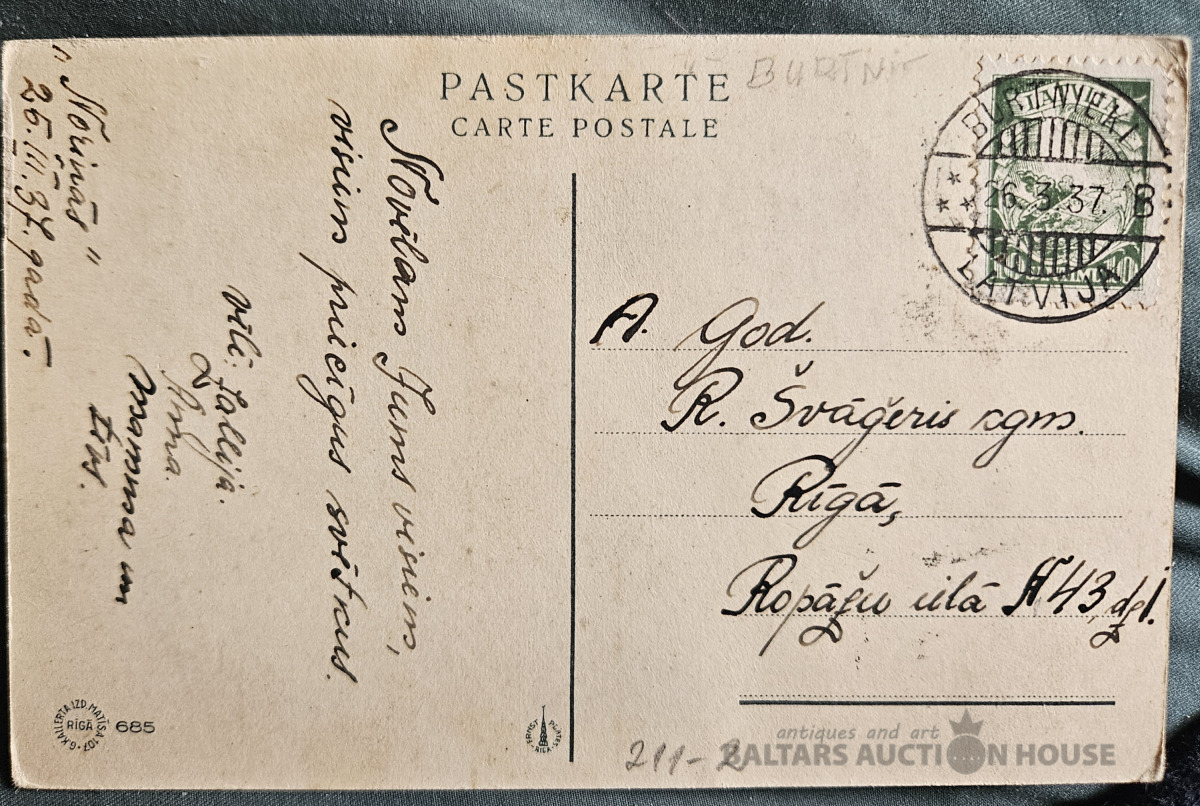 PASTKARTE
CARTE POSTALE
BURTNIE
BURTNIEKI
26.3.37. B
LATVIJA
"Norinās"
26. III. 37. gadā.
Novēlam Jums visiem,
visiem priecīgus svētkus.
Vili. Zallija.
Anna.
mamma un
tēvs.
A. God.
R. Švāģeris kgm.
Rīgā,
Ropāžu ielā N 43, dz 1.
G. KAILERTA IZD. MATĪSA 107.
RĪGĀ
685
ERNST PLATES RĪGĀ
211-2
antiques and art
BALTARS AUCTION HOUSE